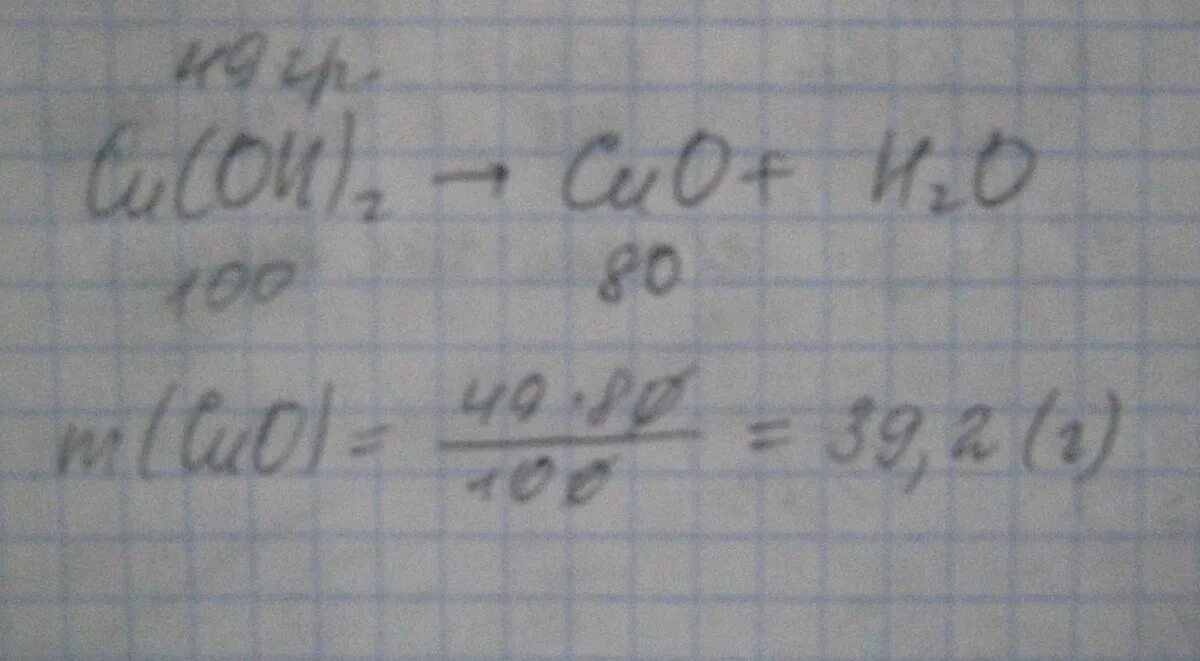 49 гр.
Cu(OH)₂ → CuO + H₂O
100 80
m(CuO) = 49·80/100 = 39,2 (г)